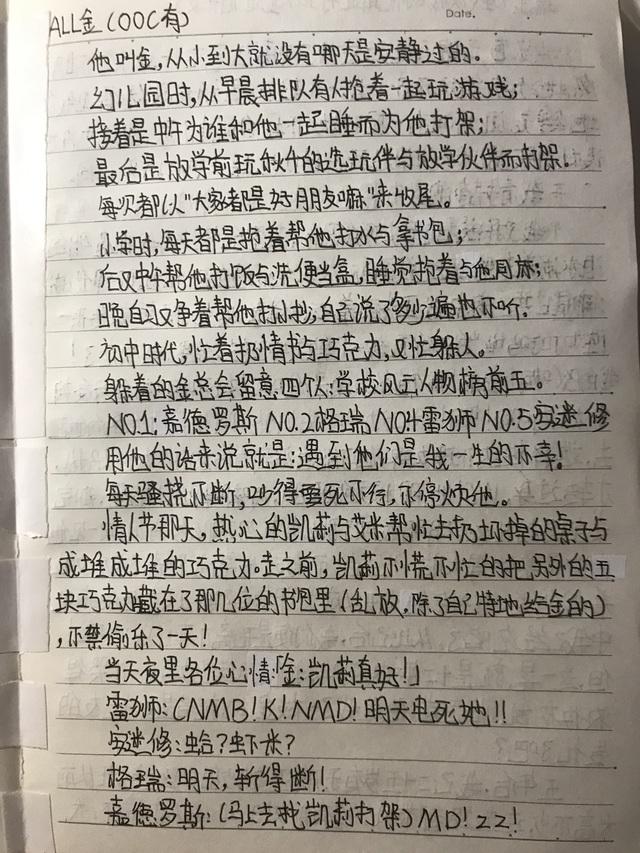 ALL金(OOC有)
Date.
他叫金,从小到大就没有哪天是安静过的。
幼儿园时,从早晨排队有人抢着一起玩游戏;
接着是中午为谁和他一起睡而为他打架;
最后是放学前玩秋千的选玩伴与放学伙伴而打架。
每次都以"大家都是好朋友嘛"来收尾。
小学时,每天都是抢着帮他打水与拿书包;
后又中午帮他打饭与洗便当盒,睡觉抢着与他同床;
晚自习又争着帮他打小抄,自己说了多少遍也不听.
初中时代,忙着扔情书与巧克力,又忙躲人。
躲着的金总会留意四个人:学校风云人物榜前五。
NO.1:嘉德罗斯 NO.2格瑞 NO.4雷狮 NO.5安迷修
用他的话来说就是:遇到他们是我一生的不幸!
每天骚挠不断,吵得要死不行,不停烦他。
情人节那天,热心的凯莉与艾米帮忙去扔坏掉的桌子与
成堆成堆的巧克力.走之前,凯莉不慌不忙的把另外的五
块巧克力藏在了那几位的书包里(乱放,除了自己特地给金的)
,不禁偷乐了一天!
当天夜里各位心情:「金:凯莉真好!」
雷狮:CNMB!K!NMD!明天电死她!!
安迷修:蛤?虾米?
格瑞:明天,斩得断!
嘉德罗斯:(马上去找凯莉打架)MD!ZZ!